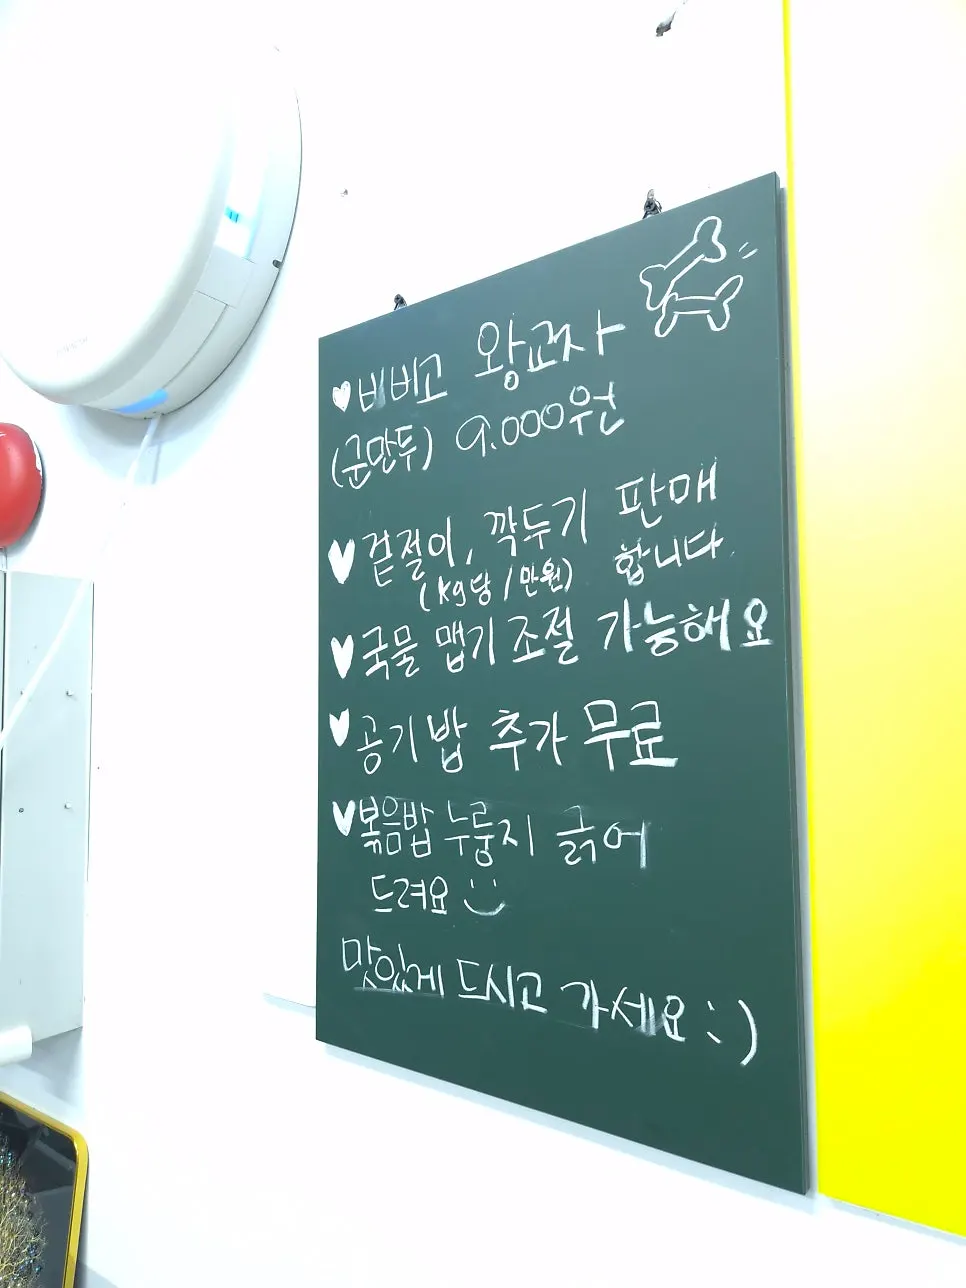 ♥비비고 왕교자
(군만두) 9.000원
♥겉절이, 깍두기 판매
(kg당/만원) 합니다.
♥국물 맵기 조절 가능해요
♥공기밥 추가 무료
♥볶음밥 누룽지 긁어
드려요 :)
맛있게 드시고 가세요 :)